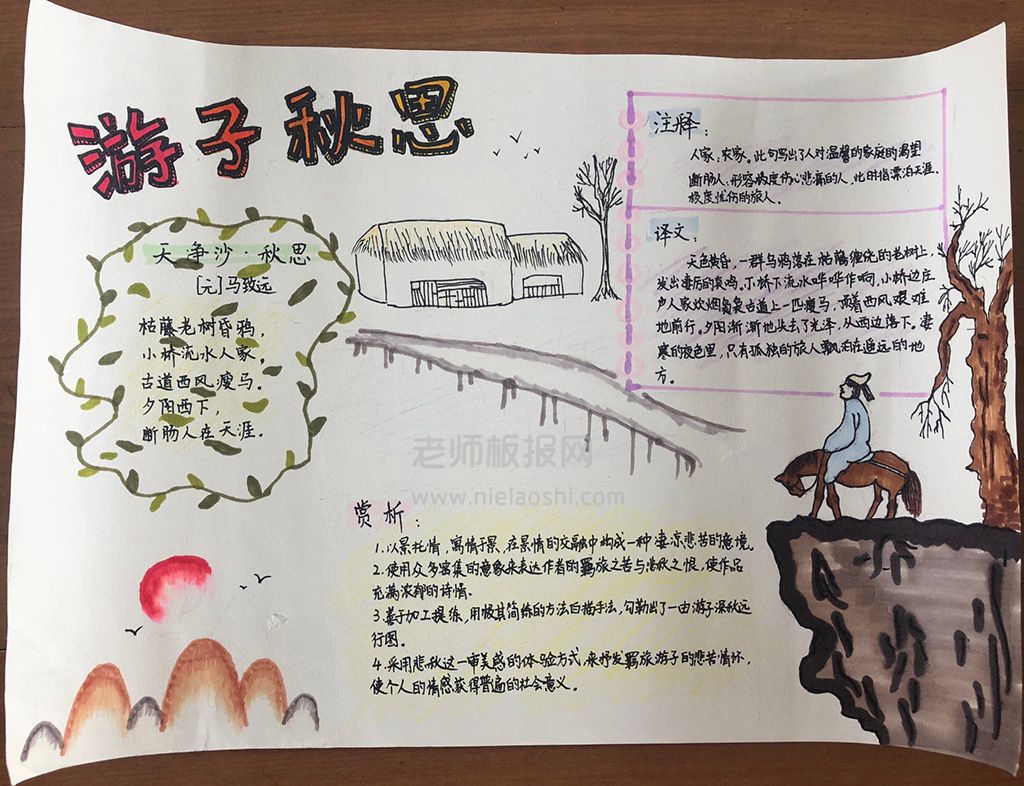 游子秋思
天净沙·秋思
[元]马致远
枯藤老树昏鸦，
小桥流水人家。
古道西风瘦马。
夕阳西下，
断肠人在天涯。
注释：
人家：农家。此句写出了人对温馨的家庭的渴望
断肠人：形容极度伤心悲痛的人，此时指漂泊天涯、
极度忧伤的旅人。
译文：
天色黄昏，一群乌鸦落在枯藤缠绕的老树上，
发出凄厉的哀鸣。小桥下流水哗哗作响，小桥边庄
户人家炊烟袅袅古道上一匹瘦马，顶着西风艰难
地前行。夕阳渐渐地失去了光泽，从西边落下。凄
寒的夜色里，只有孤独的旅人飘泊在遥远的地
方。
老师板报网
www.nielaoshi.com
赏析：
1.以景托情，寓情于景，在景情的交融中构成一种凄凉悲苦的意境。
2.使用众多密集的意象来表达作者的羁旅之苦与悲秋之恨，使作品
充满浓郁的诗情。
3.善于加工提练，用极其简练的方法白描手法，勾勒出了一由游子深秋远
行图。
4.采用悲秋这一审美感的体验方式，来抒发羁旅游子的悲苦情怀，
使个人的情感获得普遍的社会意义。